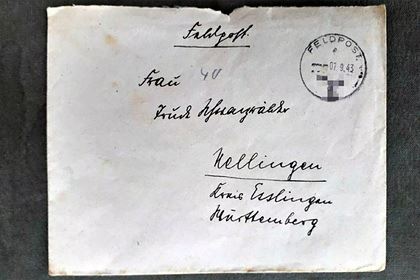 Feldpost.
FELDPOST
07.9.43
Frau 40
Trude Schwarzwälder
Nellingen
Kreis Esslingen
Württemberg